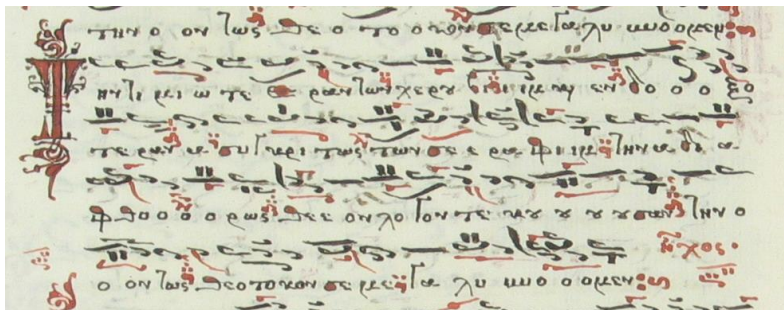 την ο ον τως θε ο το ο κον σε με γα λυ νο ο μεν
Την τι μι ω τε ε ραν των χε ρου βι ι ιμ κ εν δο ο ο ξο
τε ραν α συγ κρι τως των σε ε ρα φι ιμ την α δι α
φθο ο ο ο ρως θε ε ον λο γον τε κυ υ υ υ υ σαν την ο
ήχος
ο ον τως θε ο το κον σε με γα λυ νο ο ο μεν